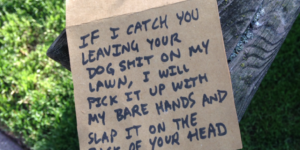 IF I CATCH YOU
LEAVING YOUR
DOG SHIT ON MY
LAWN, I WILL
PICK IT UP WITH
MY BARE HANDS AND
SLAP IT ON THE
BACK OF YOUR HEAD